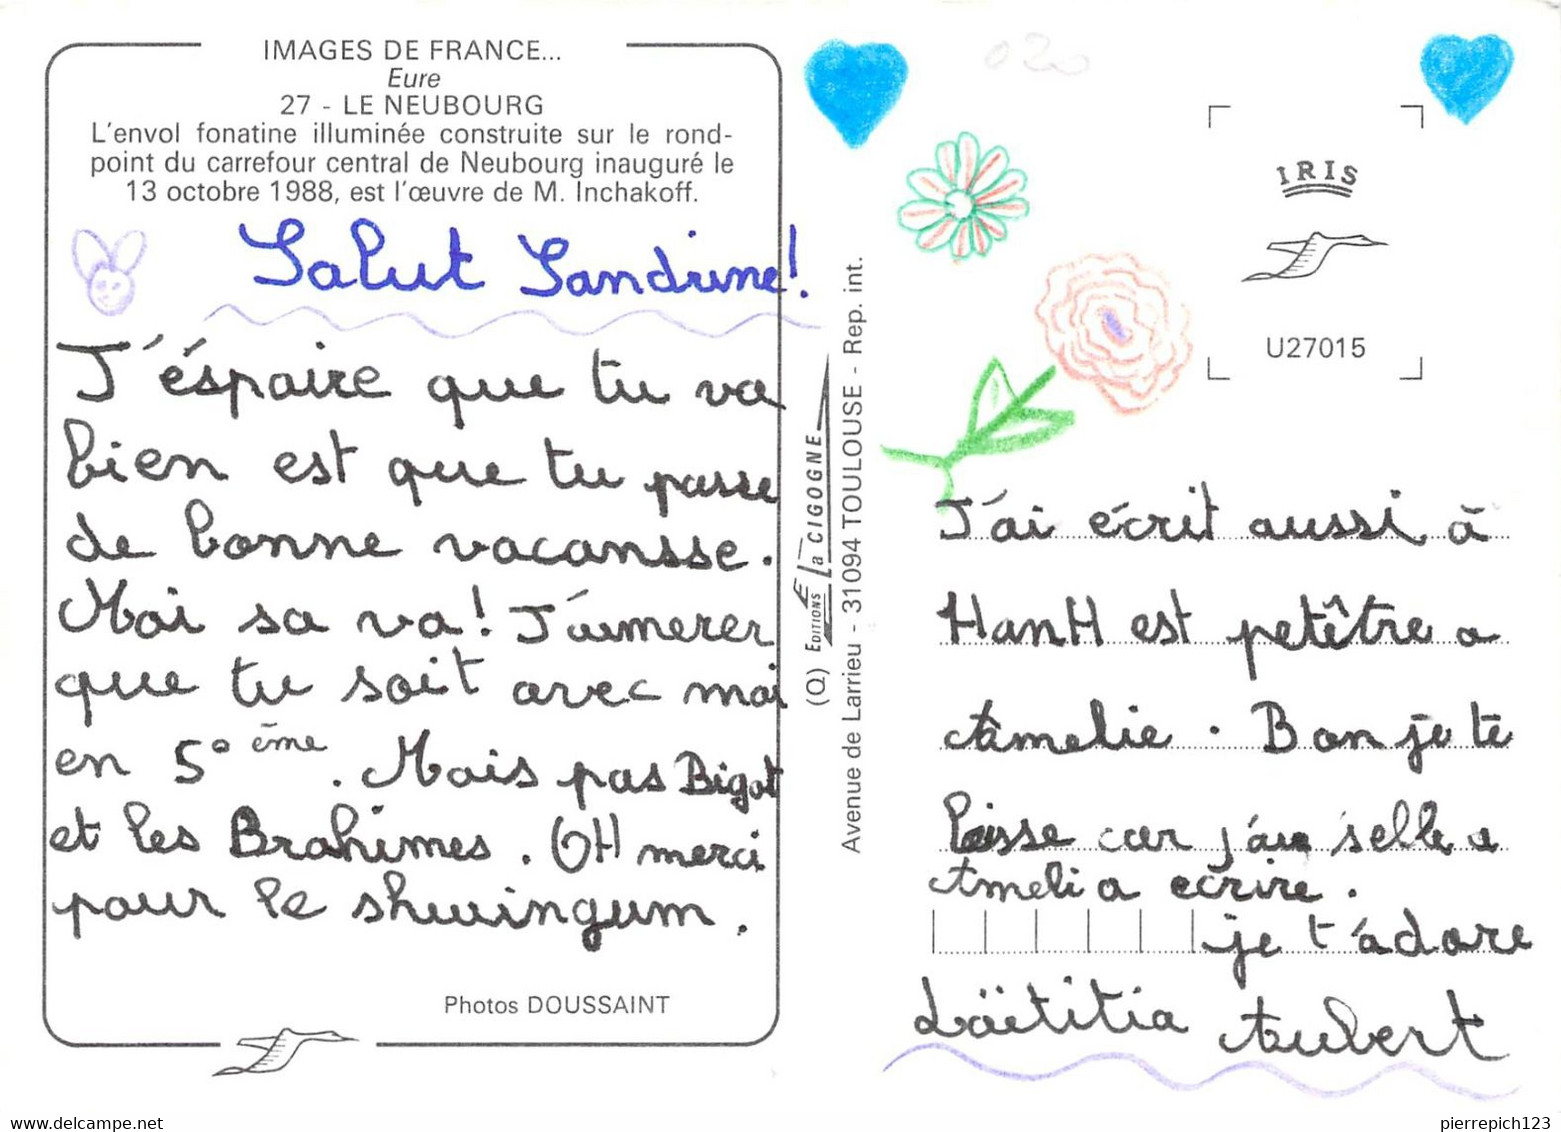 IMAGES DE FRANCE...
Eure
27 - LE NEUBOURG
L'envol fonatine illuminée construite sur le rond-
point du carrefour central de Neubourg inauguré le
13 octobre 1988, est l'œuvre de M. Inchakoff.
Salut Sandrine!
J'éspaire que tu va
bien est que tu passe
de bonne vacansse.
Moi sa va! J'aimerer
que tu soit avec moi
en 5° ème. Mais pas Bigot
et les Brahimes. OH merci
pour le shwingum.
Photos DOUSSAINT
(Q) EDITIONS La CIGOGNE
Avenue de Larrieu - 31094 TOULOUSE - Rep. int.
020
IRIS
U27015
J'ai écrit aussi à
HanH est petêtre a
Amelie. Bon je te
laisse car j'ai selle a
Ameli a ecrire.
je t'adore
Laëtitia Aubert
pierrepich123